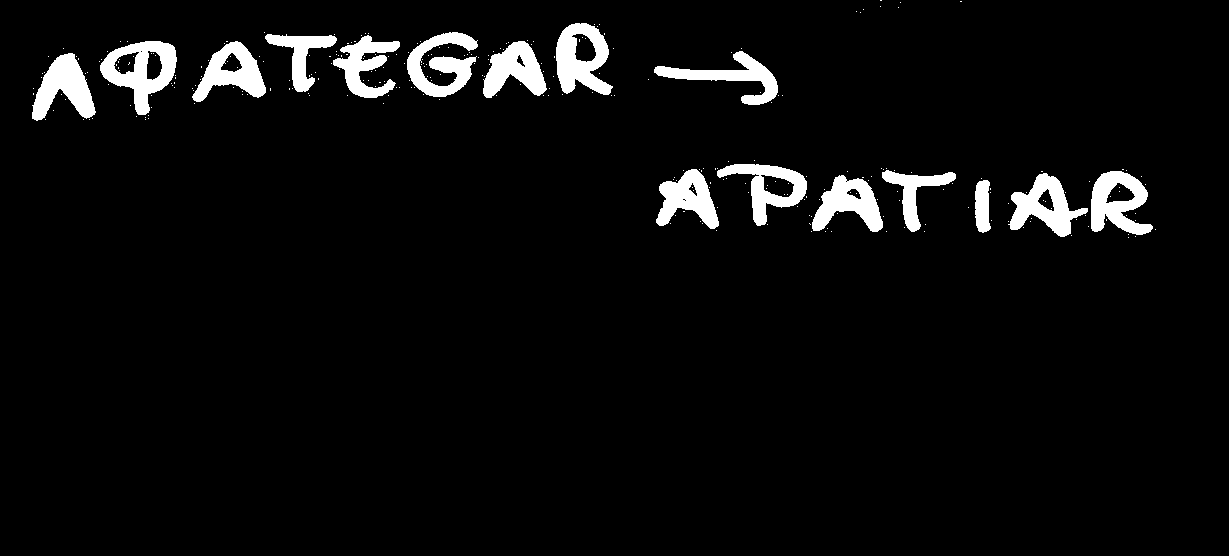 APATEGAR →
APATIAR